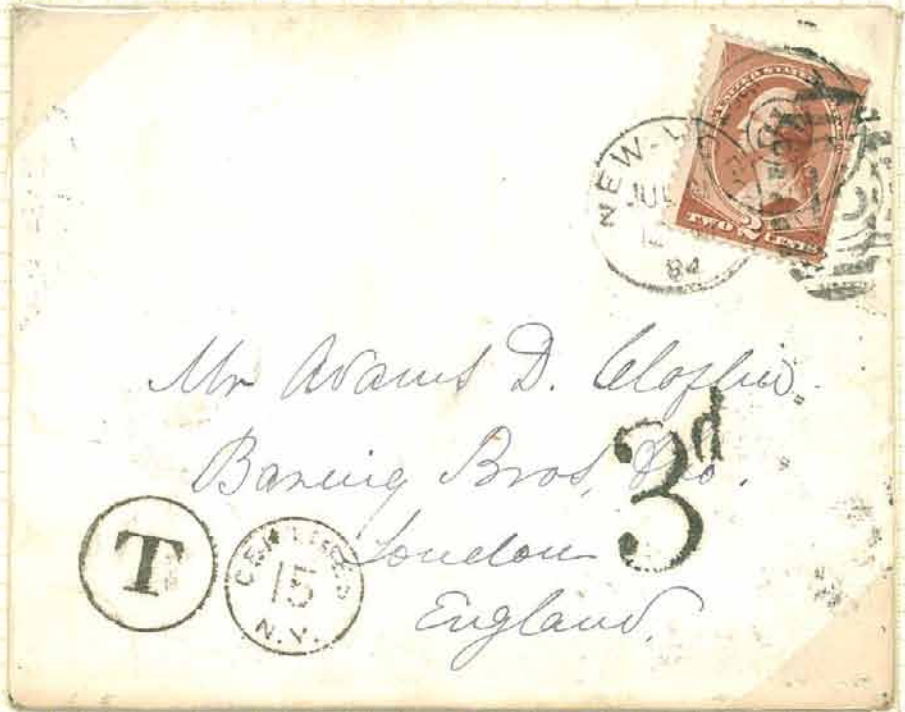 UNITED STATES
NEW-LO
JUL
84
TWO 2 CENTS
Mr Adams D. Claflin.
Baring Bros, & Co.
London
England.
3d
T
CENTIMES
15
N.Y.